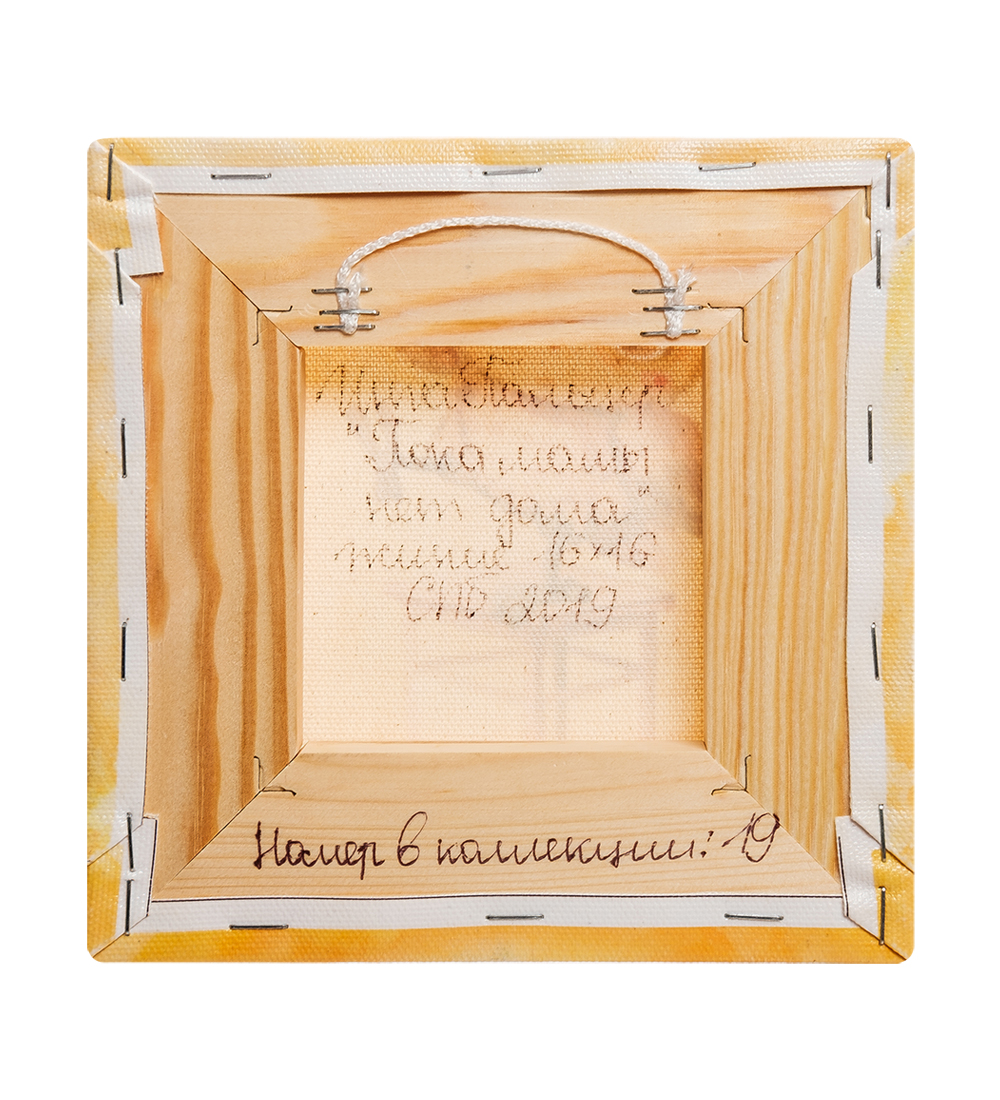 Инга Пальцер
"Пока мамы
нет дома"
жикле 16×16
СПб 2019
Номер в коллекции: 19